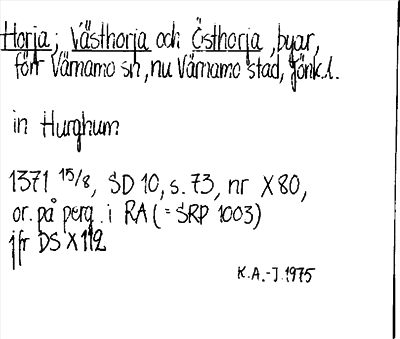 Horja; Västhorja och Östhorja, byar,
förr Värnamo sn, nu Värnamo stad, Jönk.l.
in Hurghum
1371 15/8, SD 10, s. 73, nr X 80,
or. på perg. i RA (= SRP 1003)
jfr DS X 112
K.A.-J. 1975